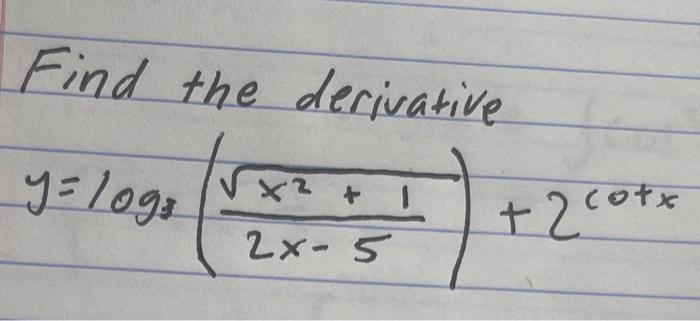 Find the derivative
y = log₃ (√(x² + 1) / (2x - 5)) + 2^(cotx)